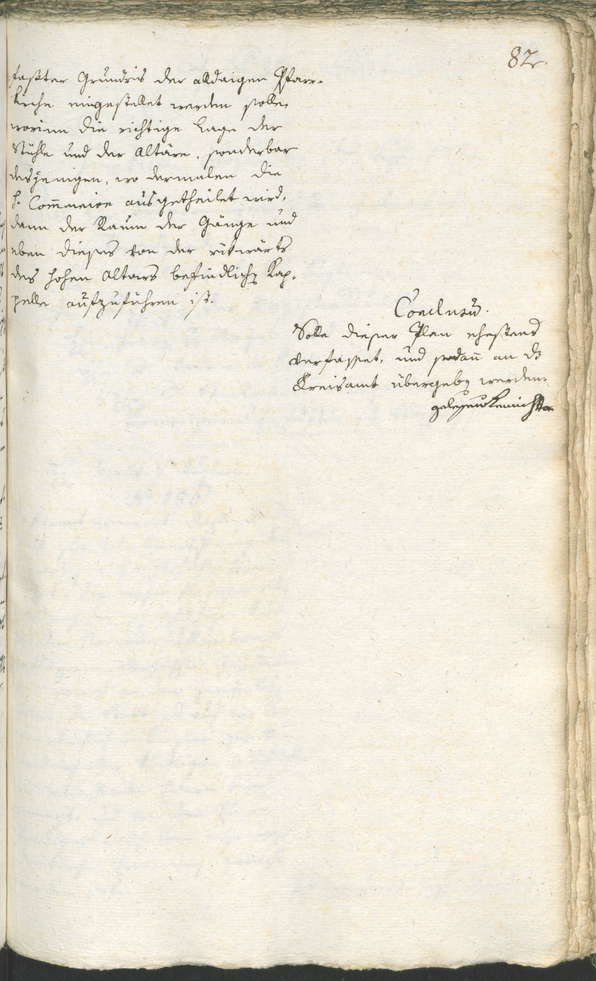 82.
faßter Grundris der alldaigen Pfarr-
kirche eingestellet werden solle,
worinn die richtige Lage der
Stühle und der Altäre, sonderbar
desjenigen, wo dermalen die
h. Com̅union ausgetheilet wird,
dann der Raum der Gänge und
eben dieses von der rükwärts
des hohen Altars befindlichen Kap-
pelle aufzuführen ist.
Conclusum.
Solle dieser Plan ehestens
verfasset, und sodan̅ an das
Kreisamt übergeben werden.